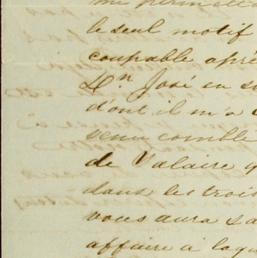 me permetta
le seul motif
coupable après
Dn José en s
dont il m'a
venir comble
de Valaire q
dans les trois
vous aura sa
affaire à laqu